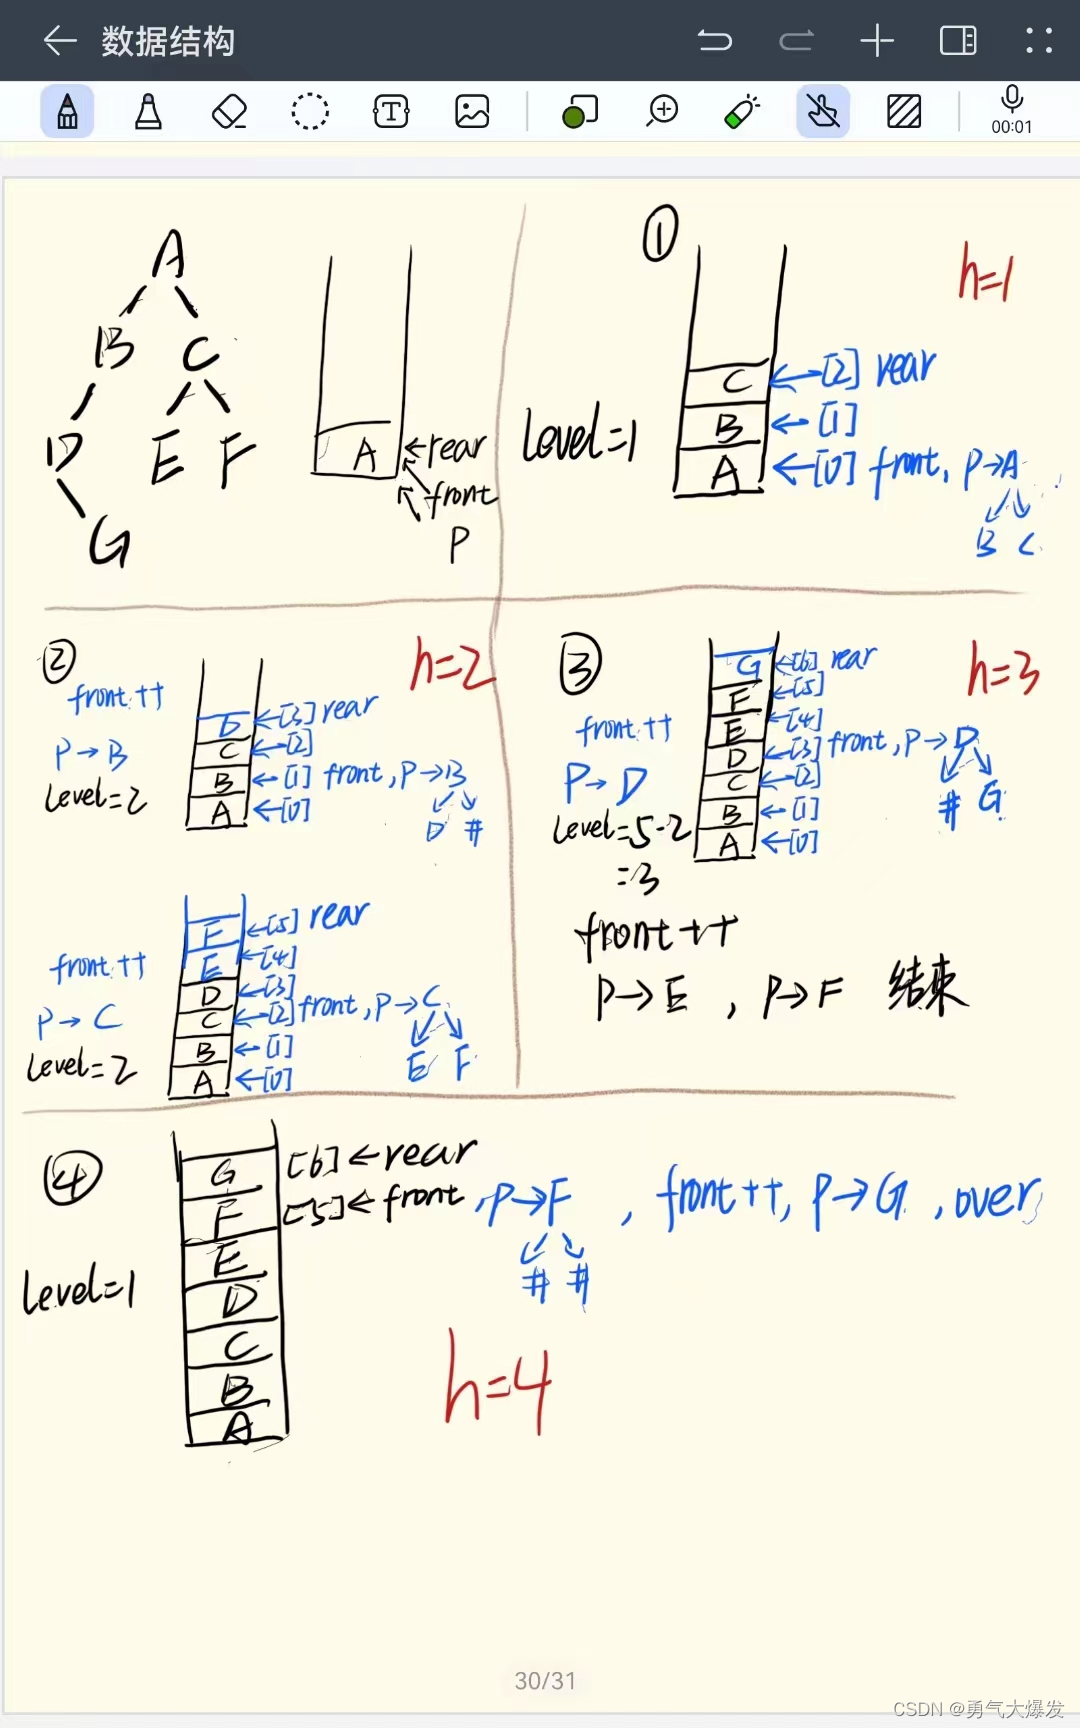 数据结构
00:01
A
B C
D E F
G
A ←rear
front
P
①
h=1
level=1
C ←[2] rear
B ←[1]
A ←[0] front, P→A
B C
②
h=2
front++
P→B
level=2
D ←[3] rear
C ←[2]
B ←[1] front, P→B
A ←[0]
D #
front++
P→C
level=2
F ←[5] rear
E ←[4]
D ←[3]
C ←[2] front, P→C
B ←[1]
A ←[0]
E F
③
h=3
front++
P→D
level=5-2
=3
G ←[6] rear
F ←[5]
E ←[4]
D ←[3] front, P→D
C ←[2]
B ←[1]
A ←[0]
# G
front++
P→E , P→F 结束
④
level=1
G [6]←rear
F [5]←front, P→F , front++, P→G , over
# #
E
D
C
B
A
h=4
30/31
CSDN @勇气大爆发